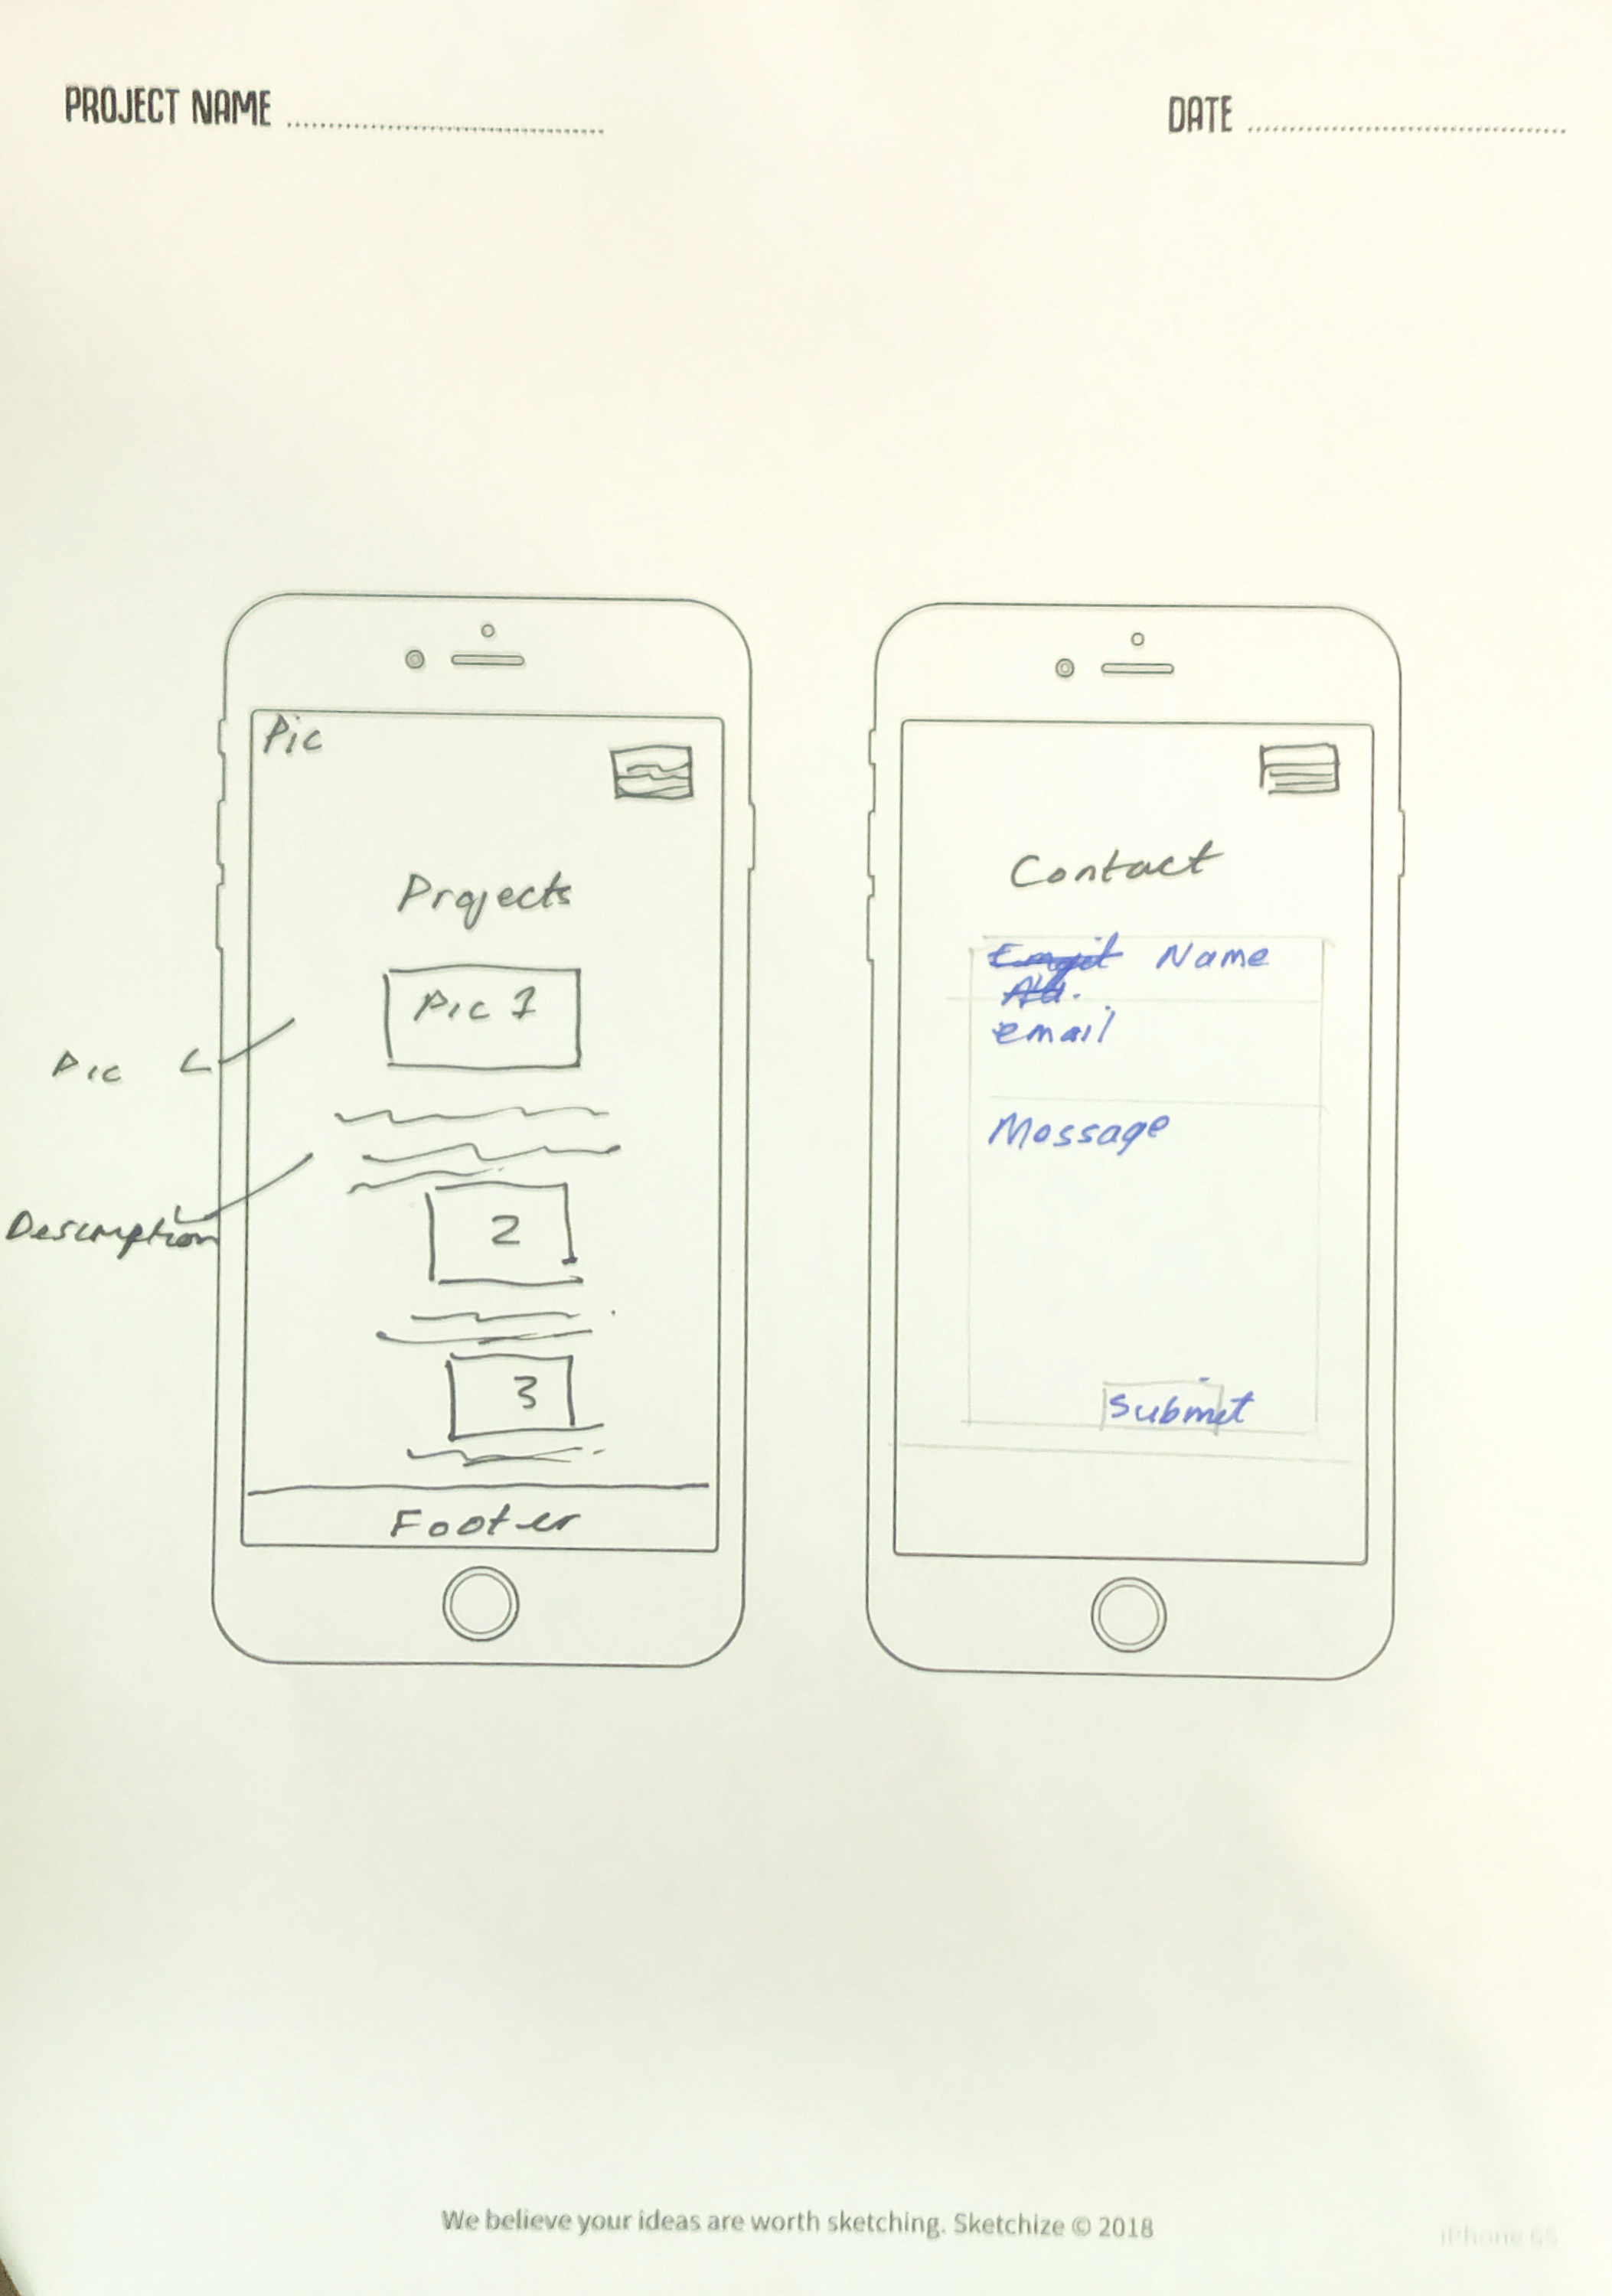 PROJECT NAME
DATE
Pic
Projects
Pic 1
Pic
Description
2
3
Footer
Contact
Name
email
Message
Submit
We believe your ideas are worth sketching. Sketchize © 2018
iPhone 6S